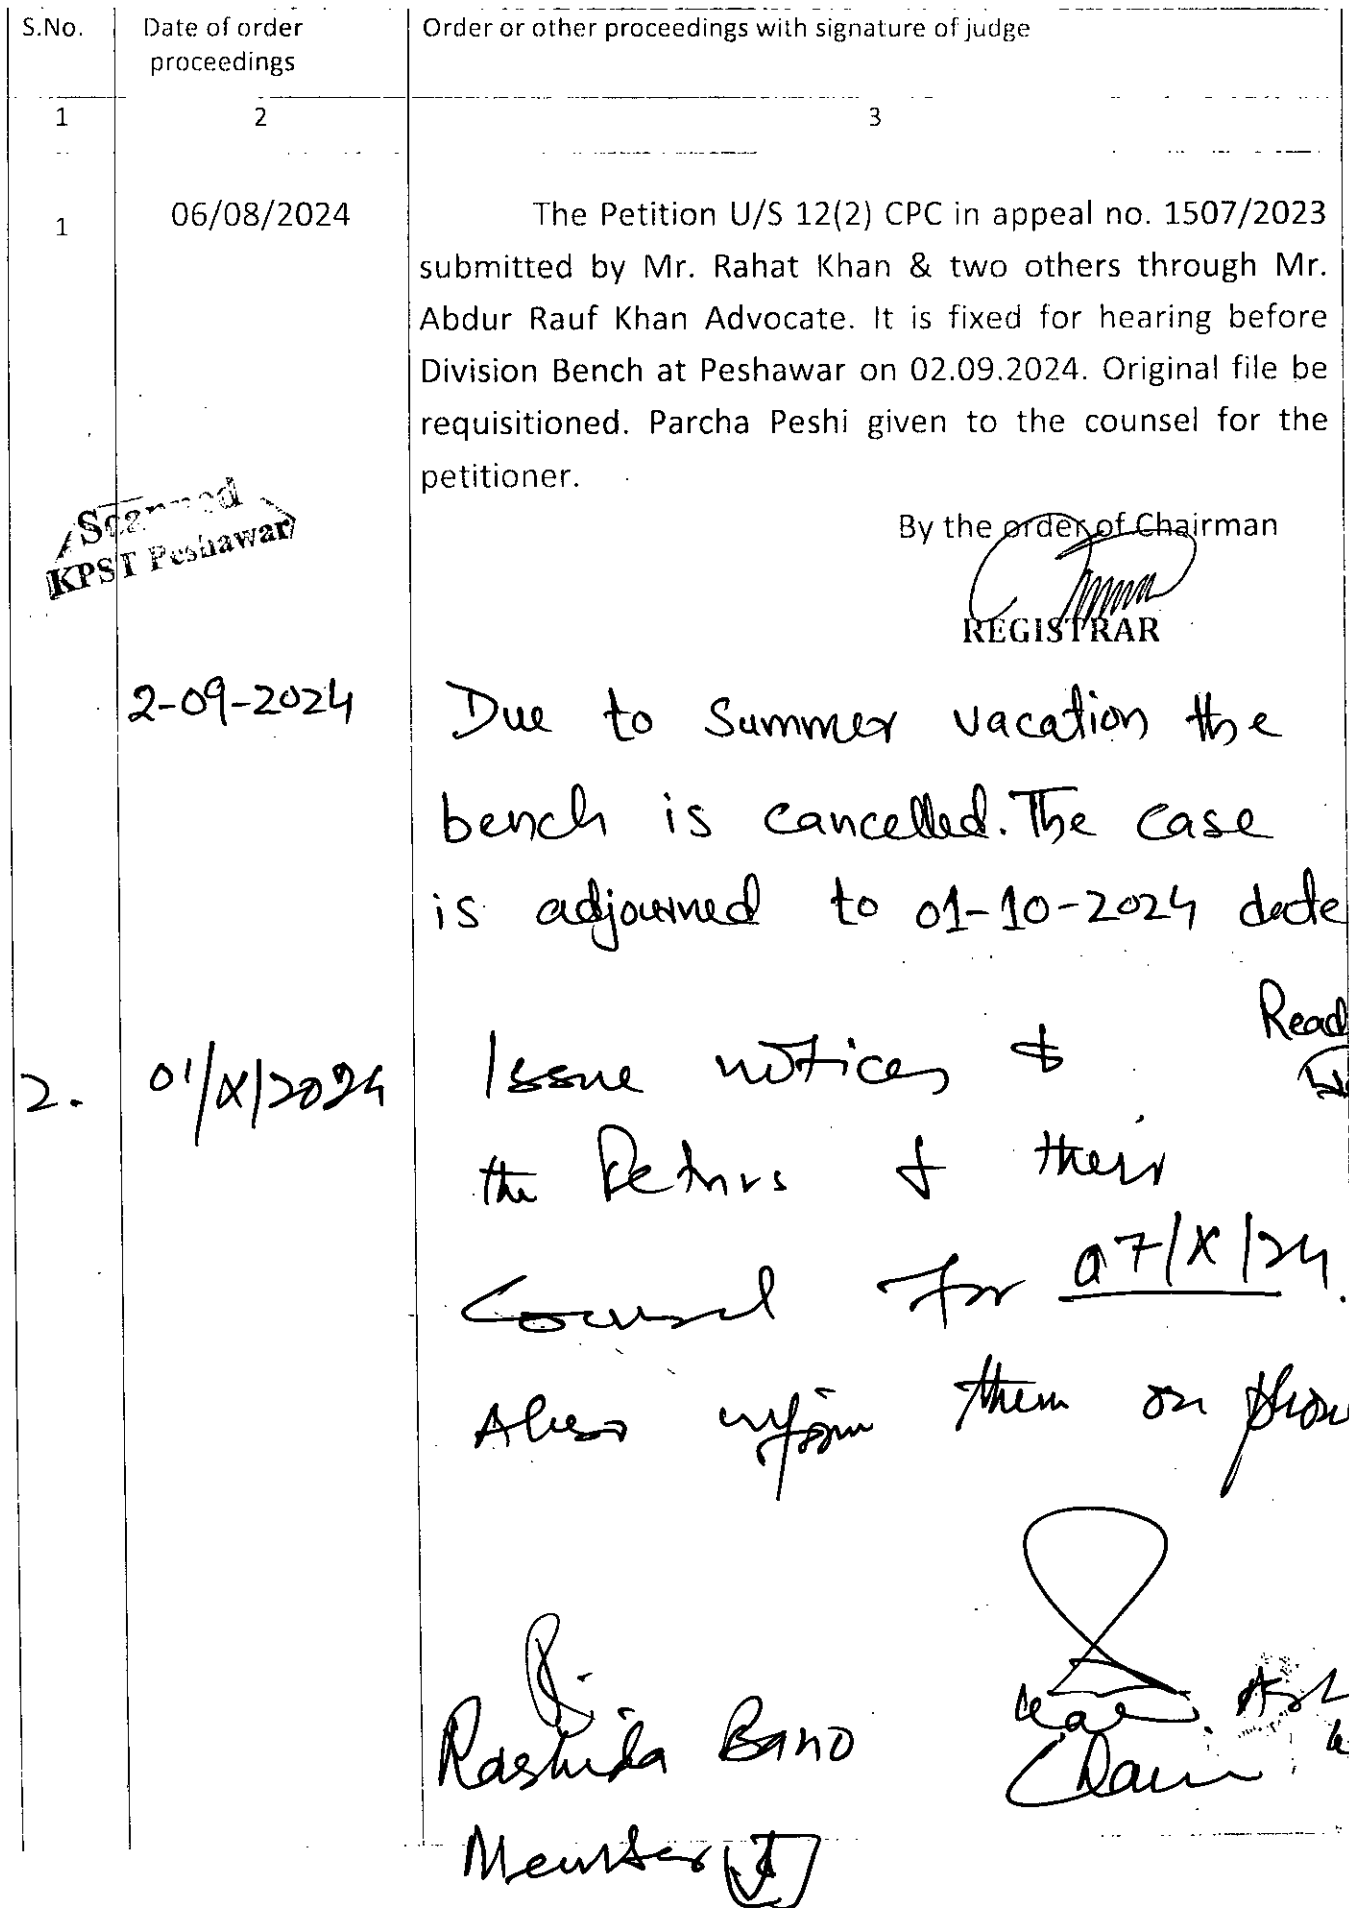 S.No.
Date of order
proceedings
Order or other proceedings with signature of judge
1
2
3
1
06/08/2024
The Petition U/S 12(2) CPC in appeal no. 1507/2023
submitted by Mr. Rahat Khan & two others through Mr.
Abdur Rauf Khan Advocate. It is fixed for hearing before
Division Bench at Peshawar on 02.09.2024. Original file be
requisitioned. Parcha Peshi given to the counsel for the
petitioner.
Scanned
KPST Peshawar
By the order of Chairman
REGISTRAR
2-09-2024
Due to Summer vacation the
bench is cancelled. The case
is adjourned to 01-10-2024 date
Read
2.
01/X/2024
Issue notices to
the & their
Counsel for 07/X/24.
Also inform them on
Rashida Bano
Member (J)